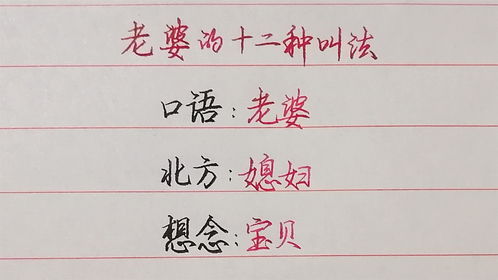 老婆的十二种叫法
口语：老婆
北方：媳妇
想念：宝贝